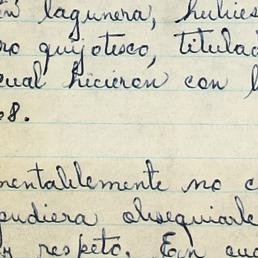 en lagunera, hubies
ro quijotesco, titulad
cual hicieron con l
8.
mentablemente no c
pudiera obsequiarle
y respeto. En cua